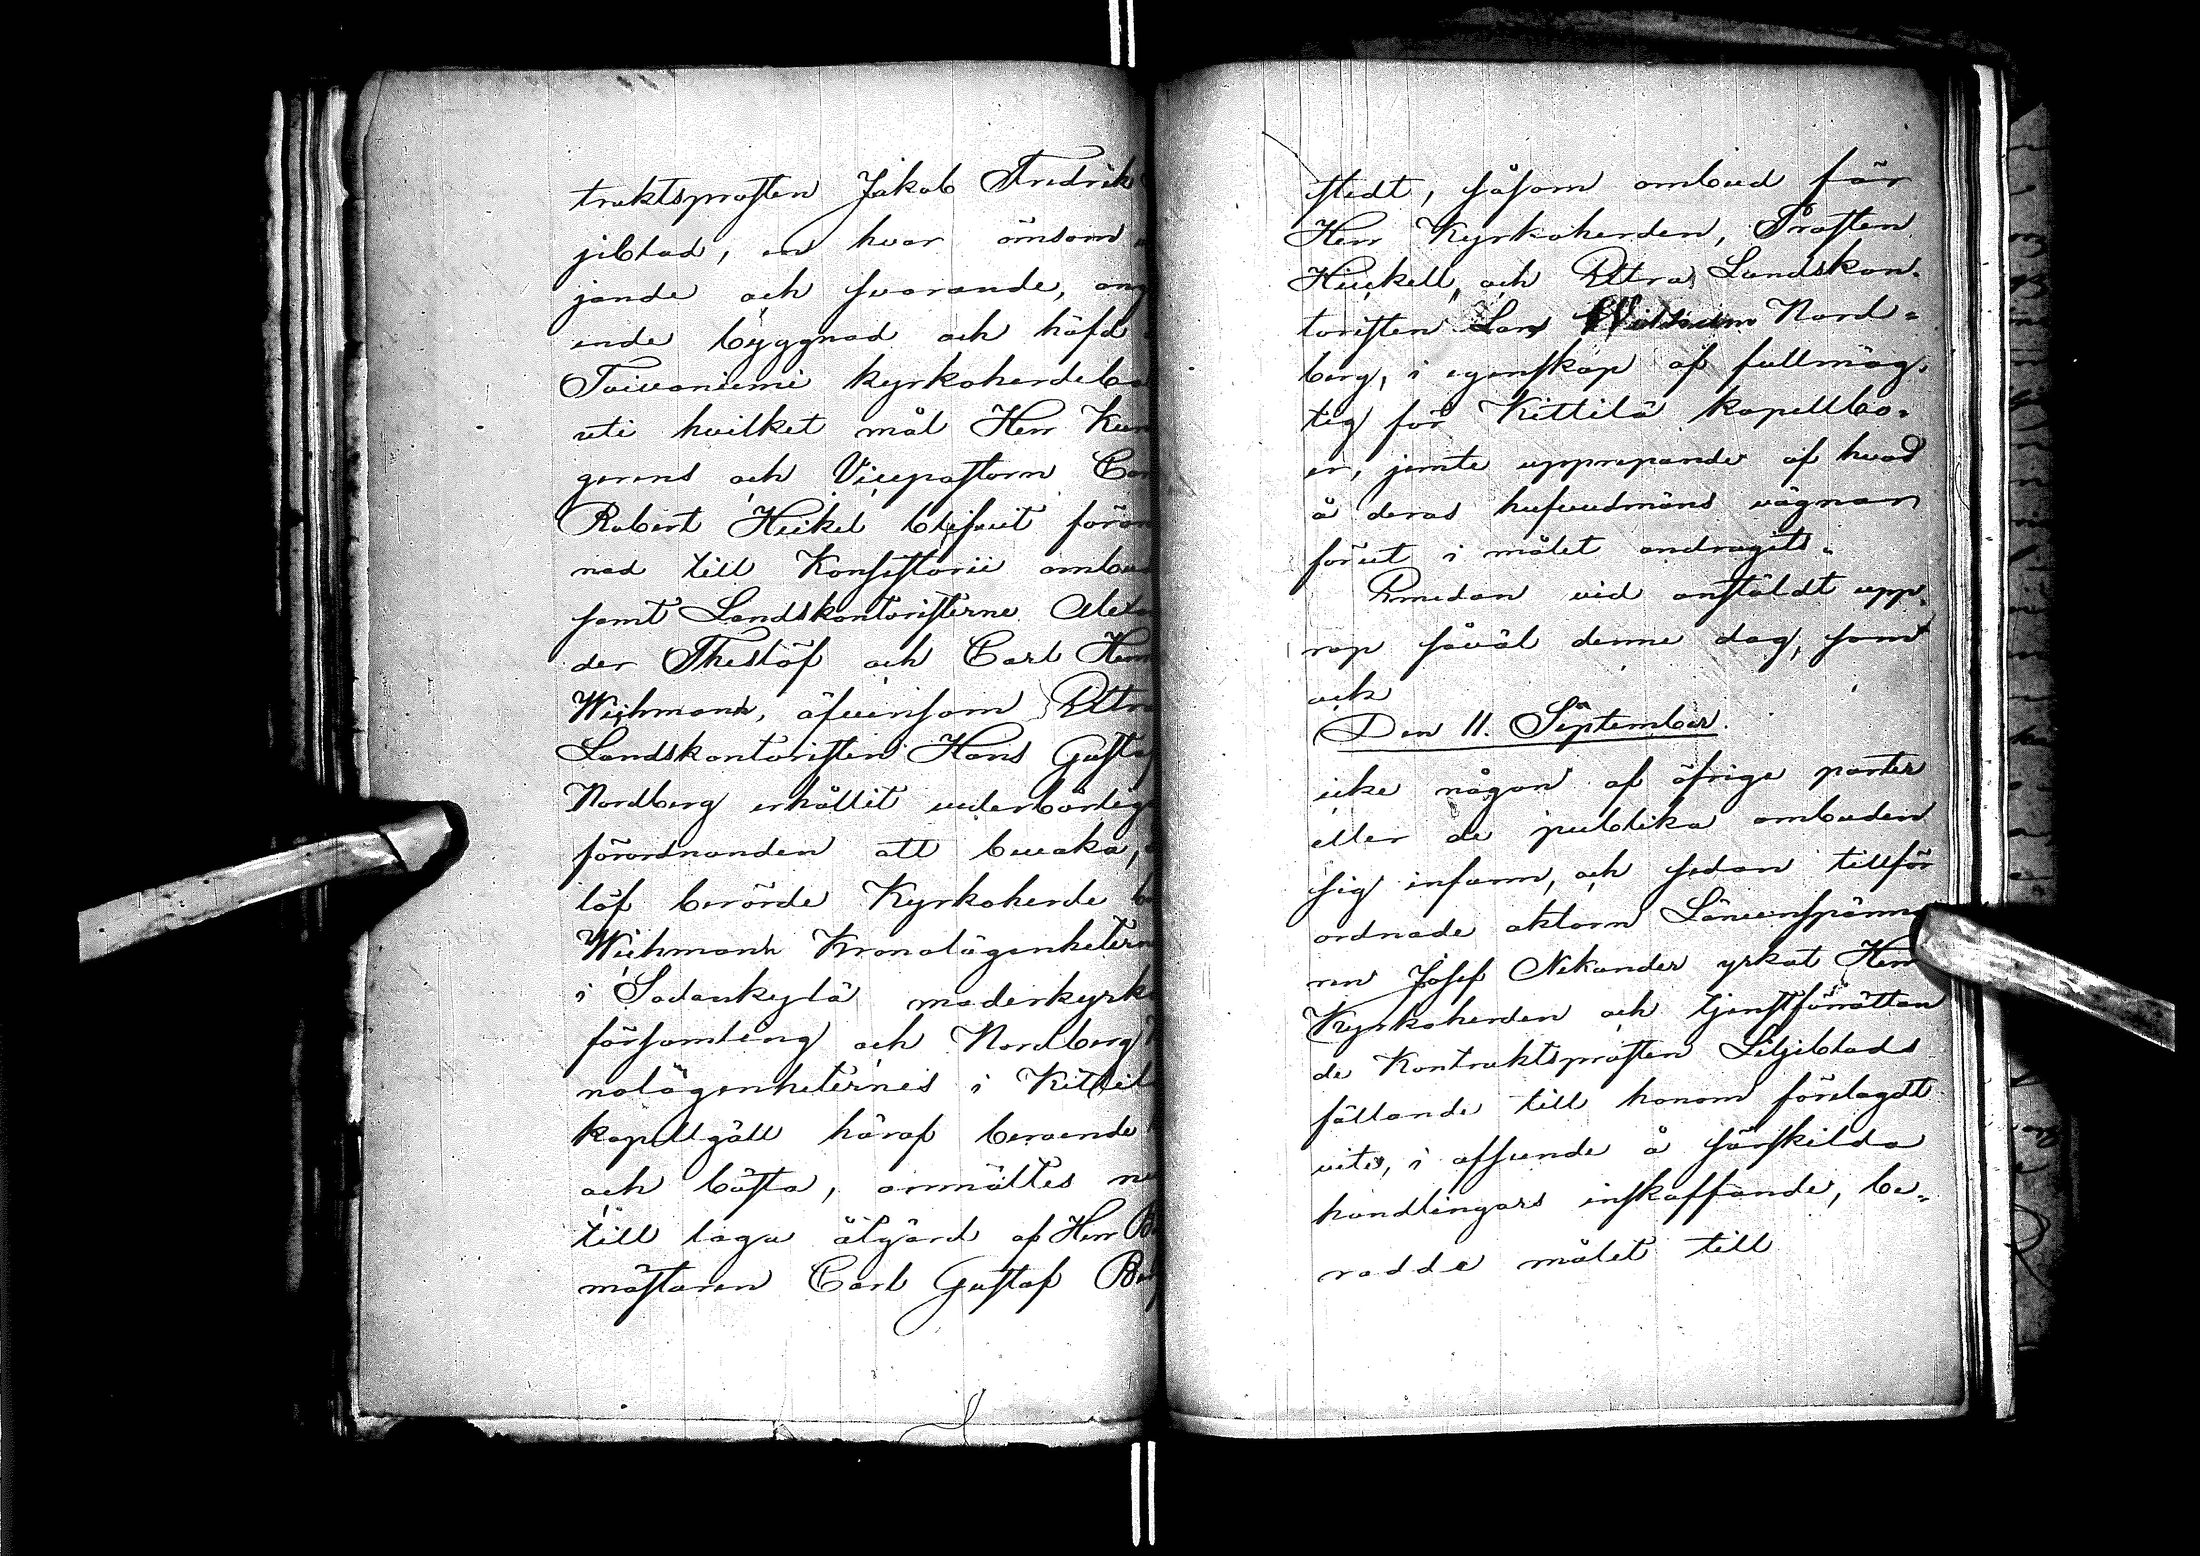 traktsprosten Jakob Fredrik
jeblad, en hvar ömsom
jande och svarande, ang
ende byggnad och häfd
Taivaniemi kyrkoherdebo
uti hvilket mål Herr Kun
gerens och Vicepastorn Car
Robert Heikel blifvit föror
nad till Konsistorii ombud
samt Landskontoristerne Alexan
der Theslöf och Carl Hen
Wichmann, äfvensom Extra
Landskontoristen Hans Gustaf
Nordberg erhållit vederbörlige
förordnanden att bevaka,
löf berörde Kyrkoherde bo
Wichmann Kronolägenhetern
i Sodankylä moderkyrko
församling och Nordberg
nolägenheternes i Kittil
kapellgäll häraf beroende
och bästa, anmältes nu
till laga åtgärd af Herr B
mästaren Carl Gustaf Ber
stedt, såsom ombud för
Herr Kyrkoherden, Prosten
Heickell, och Extra Landskon-
toristen Lars Wilhelm Nord-
berg, i egenskap af fullmäg-
tig för Kittilä kapellbo-
er, jemte upprepande af hvad
å deras hufvudmäns vägnar
förut i målet andragits.
Emedan vid anstäldt upp-
rop såväl denne dag, som
ock
Den 11. September.
icke någon af öfrige parter
eller de publika ombuden
sig infunn, och sedan tillför
ordnade aktorn Länemanspänn
ren Josef Nekander yrkat Herr
Kyrkoherden och tjenstförrättan
de Kontraktsprosten Liljeblads
fällande till honom förelagdt
vite, i afseende å särskilda
handlingars inskaffande, be-
rodde målet till